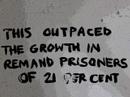 THIS OUTPACED
THE GROWTH IN
REMAND PRISONERS
OF 21 PER CENT